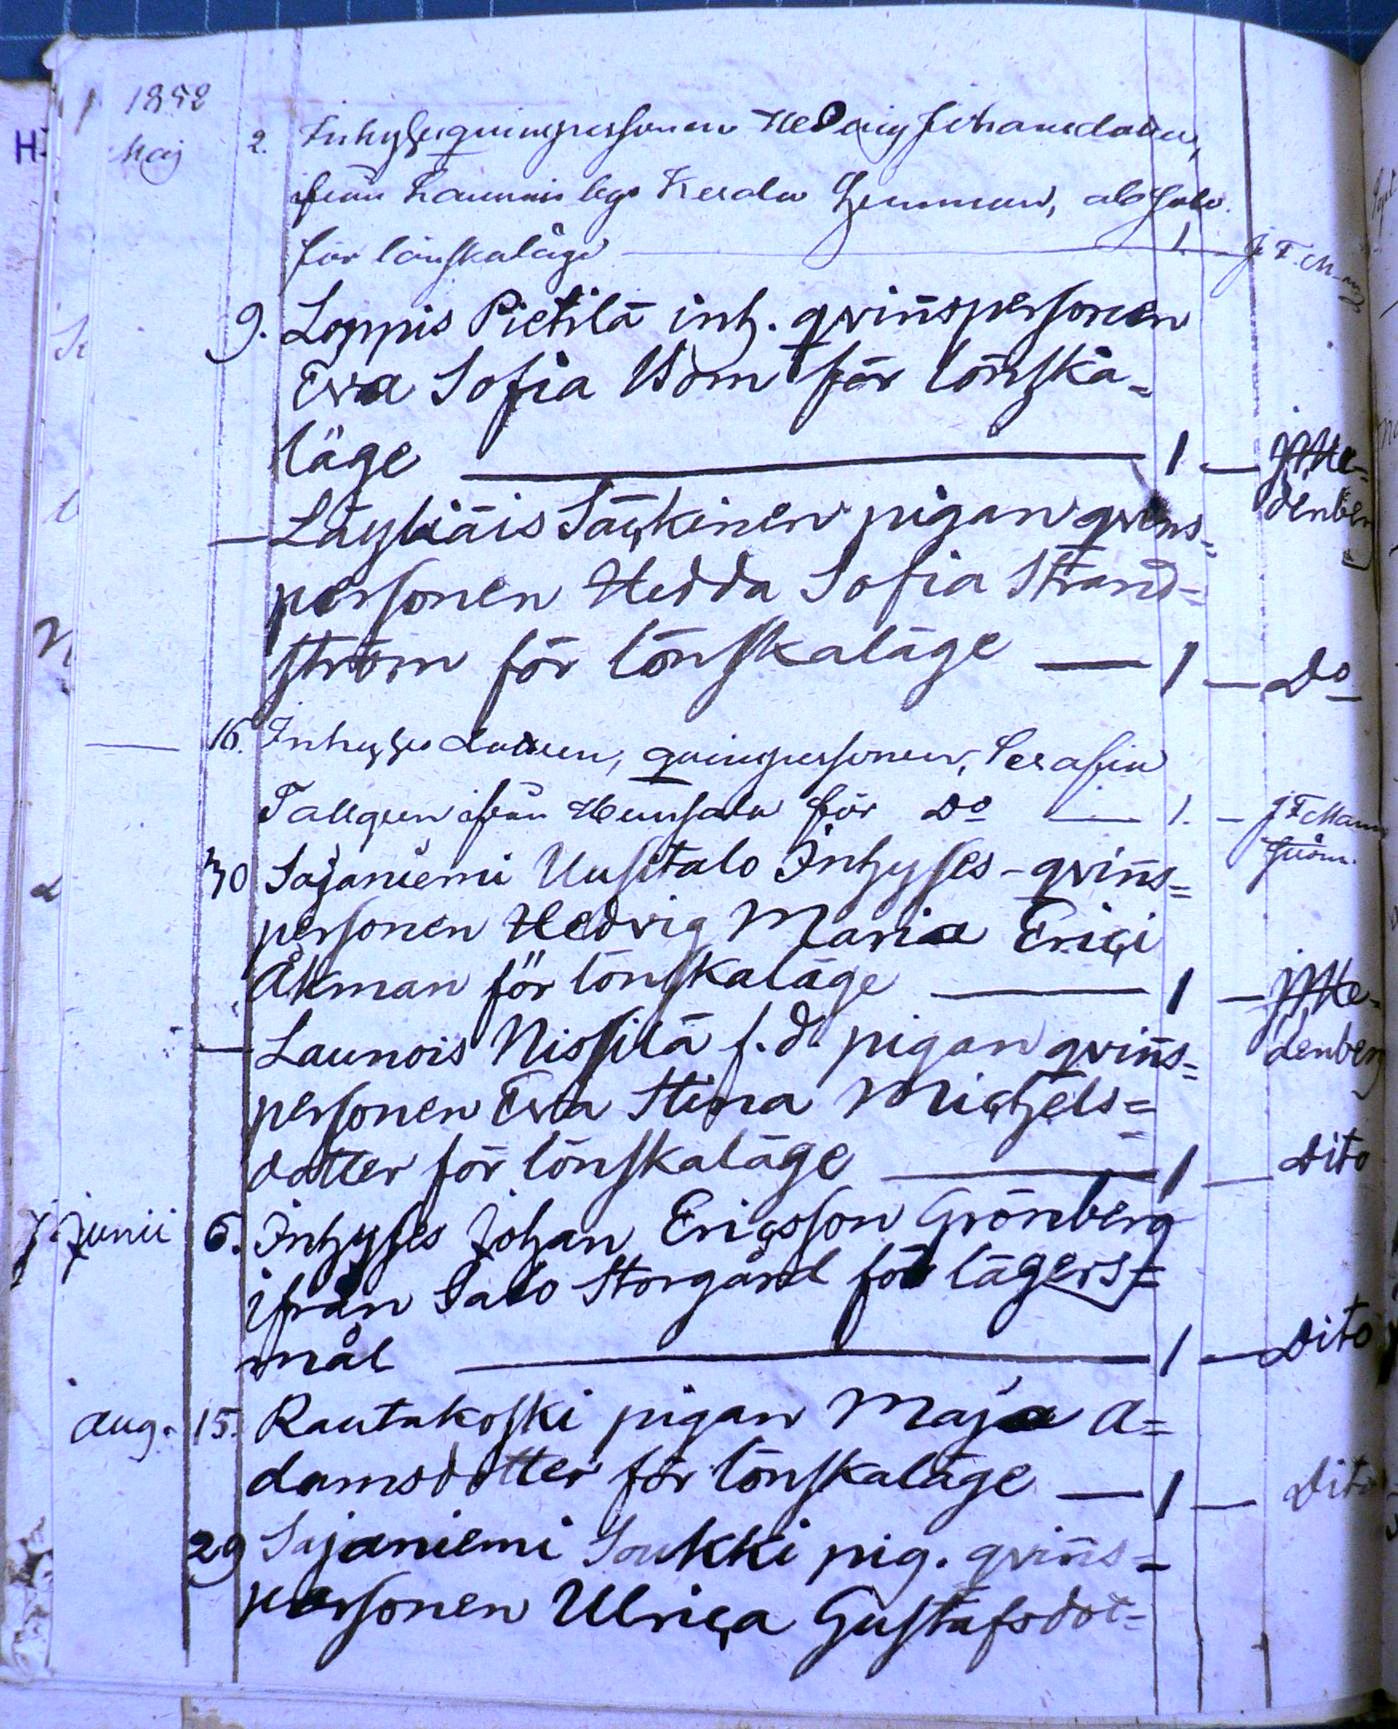 1852
Maj 2. Inhyses qvinspersonen Hedvig Johansdotter,
från Launois by Kerala hemman, absolv.
för lönskaläge 1 — J F. Man
9. Loppis Pietilä inh. qvin̄spersonen
Eva Sofia Wöm för lönska=
läge 1 — J H He=
denberg
— Läyliäis Särkinen pigan qvins=
personen Hedda Sofia Strand=
ström för lönskaläge — 1 — Do
— 16. Inhyses qvinspersonen, Serafia
Tallqren ifrån Hunsala för Do — 1. — J F Mann
ström.
30 Sajaniemi Uusitalo Inhyses-qvin̄s=
personen Hedvig Maria Erici
Åkman för lönskaläge — 1 — J H He=
denberg
— Launois Nissilä f.d. pigan qvin̄s=
personen Eva Stina Michels=
dotter för lönskaläge — 1 — Dito
Junii 6. Inhyses Johan Ericsson Grönberg
ifrån Salo Storgård för lägers=
mål — 1 — Dito
Aug. 15. Rautakoski pigan Maja A=
damsdotter för lönskaläge — 1 — Dito
29 Sajaniemi Soukki pig. qvin̄s=
personen Ulrica Gustafsdot=